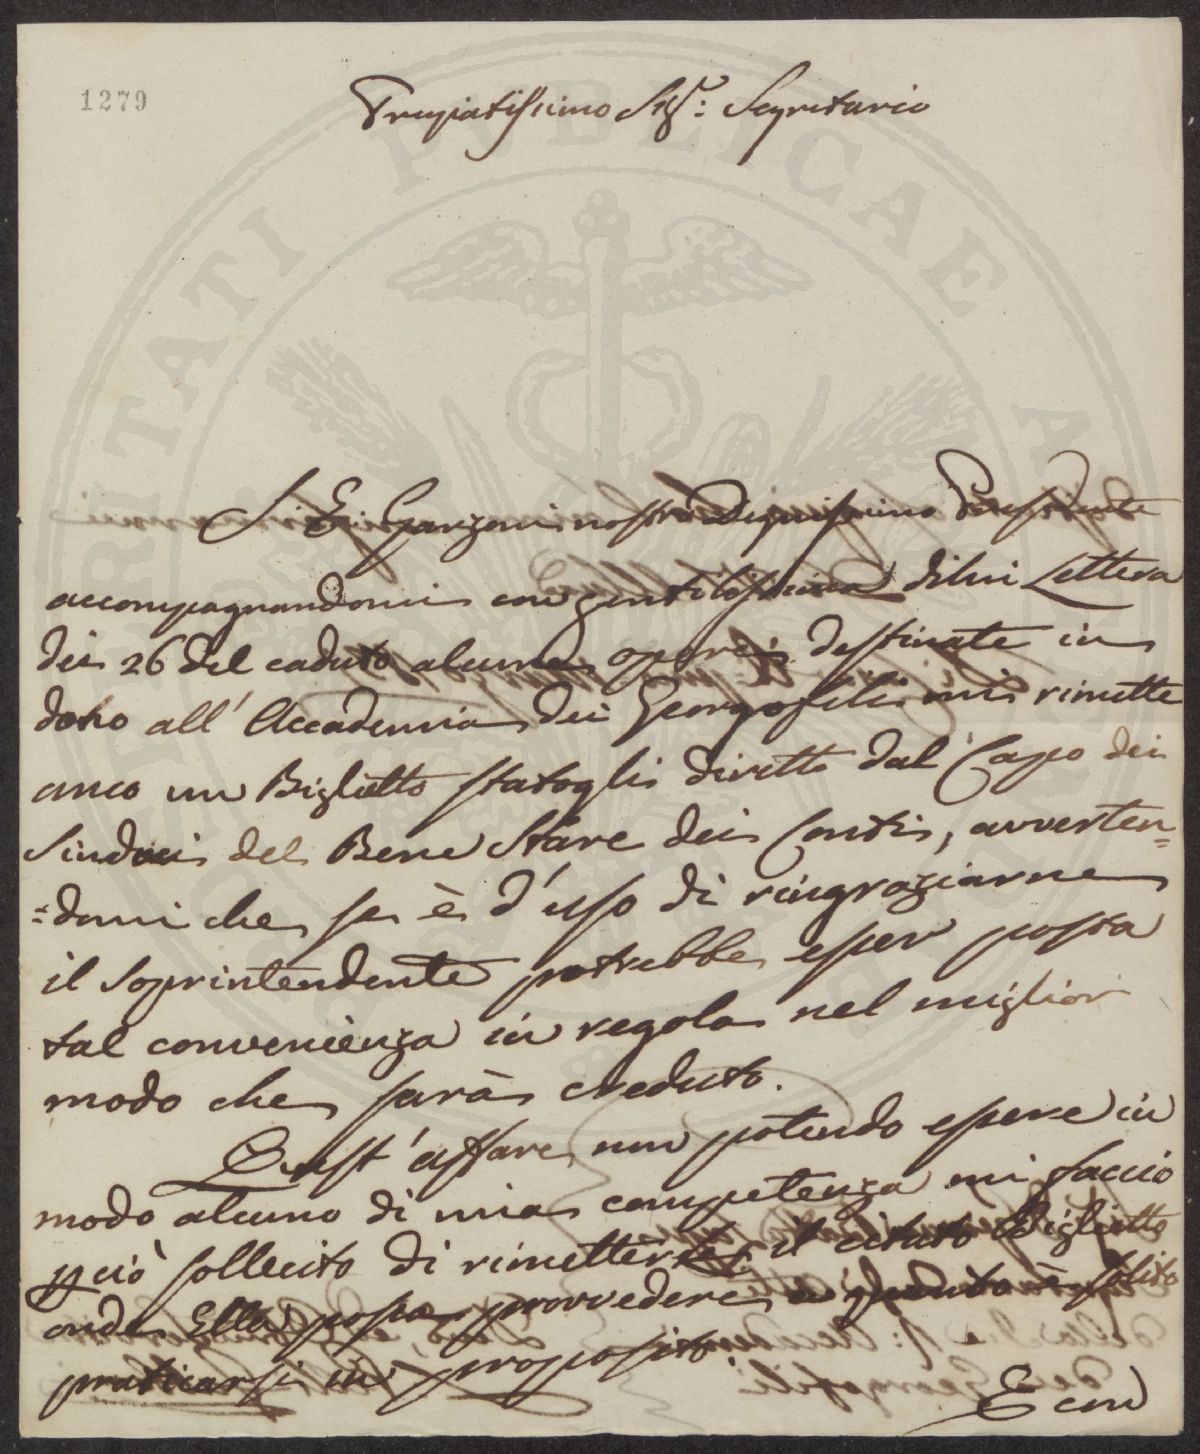 1279
Pregiatissimo Sigr: Segretario
S. E. Garzoni nostro Degnissimo Presidente
accompagnandomi con gentilissima di lui Lettera
dei 26 del caduto alcune opere destinate in
dono all' Accademia dei Georgofili mi rimette
anco un Biglietto statogli diretto dal Capo dei
Sindaci del Bene Stare dei Conti, avverten=
=domi che se è d'uso di ringraziarne
il Soprintendente potrebbe esser posta
tal convenienza in regola nel miglior
modo che sarà creduto.
Quest' affare non potendo essere in
modo alcuno di mia competenza mi faccio
pciò sollecito di rimetterle il citato Biglietto
onde Ella possa provvedere a quanto è solito
praticarsi in proposito.
E con
PUBLICAE